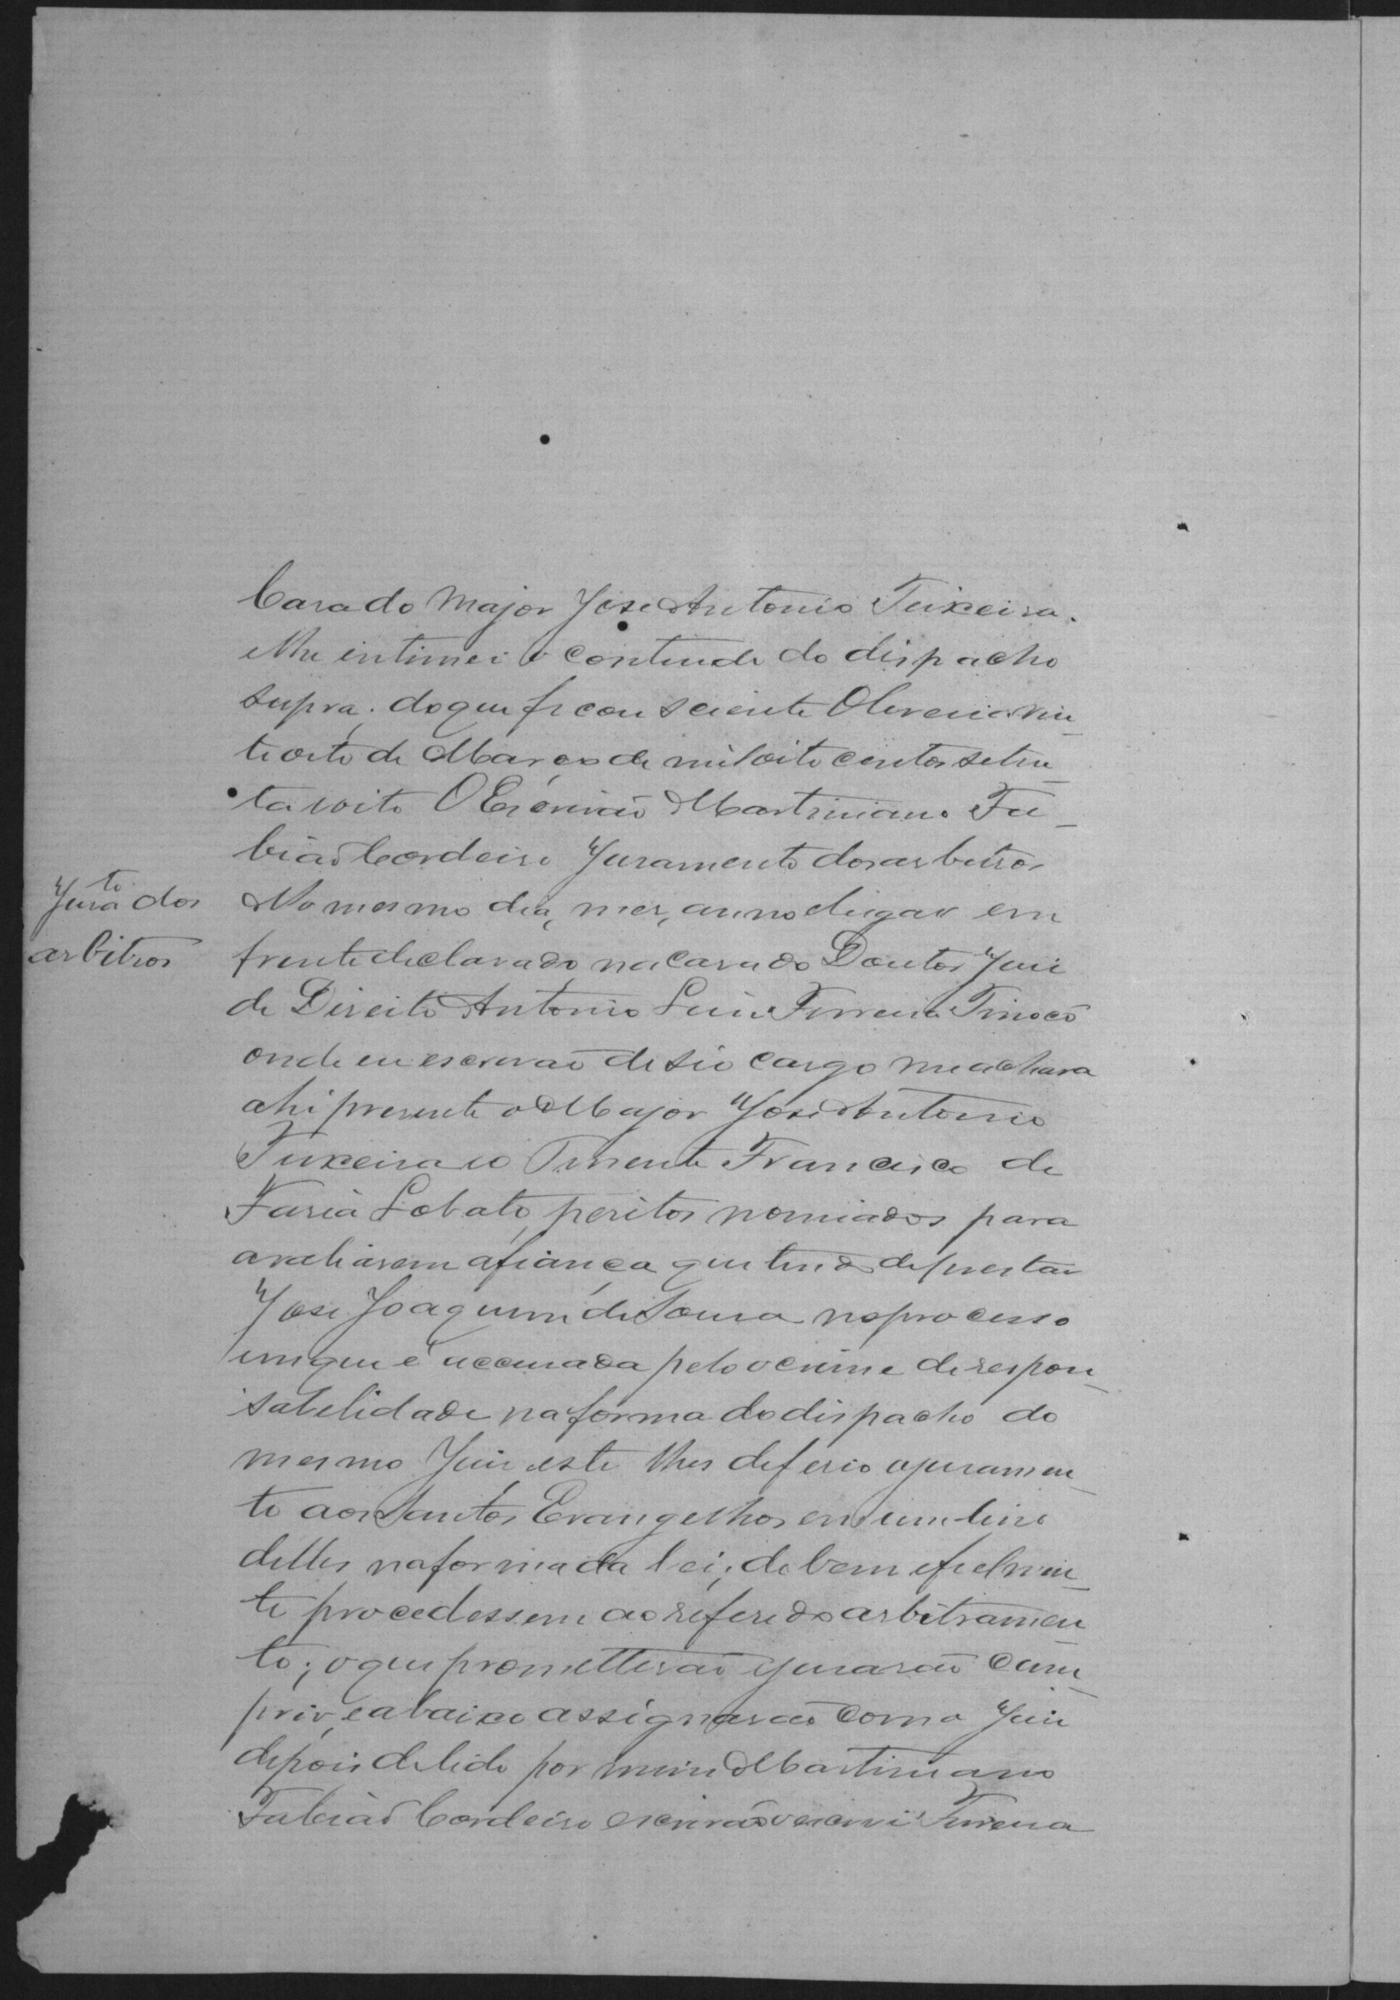 Casa do Major Jose Antonio Teixeira.
e lhe intimei o contiudo do dispacho
supra, do que ficou sciente O referido vin
te oito de Março de mil oito centos seten
ta e oito O Escrivão Martiniano Fa
bião Cordeiro Juramento dos arbitros
Jura.to dos
arbitros
No mesmo dia, mes, anno e lugar em
frente declarado, na casa do Doutor Juis
de Direito Antonio Luis Ferreira Tinoco
onde eu escrivão de seo cargo me achava
ahi presente o Major Jose Antonio
Teixeira e o Tenente Francisco de
Faria Lobato, peritos nomiados para
avaliarem a fiança que tem de prestar
Jose Joaquim de Sousa no processo
em que é accusada pelo crime de respon
sabelidade na forma do dispacho do
mesmo Juis este lhes deferio o juramen
to aos Santos Evangelhos em um livro
delles na forma da lei, de bem e fielmen
te procedessem ao referido arbitramen
to; o que prometterão e jurarão cum
prir, e abaixo assignarão com o Juis
depois de lido por mim Martiniano
Fabião Cordeiro escrivão o escrevi Ferreira